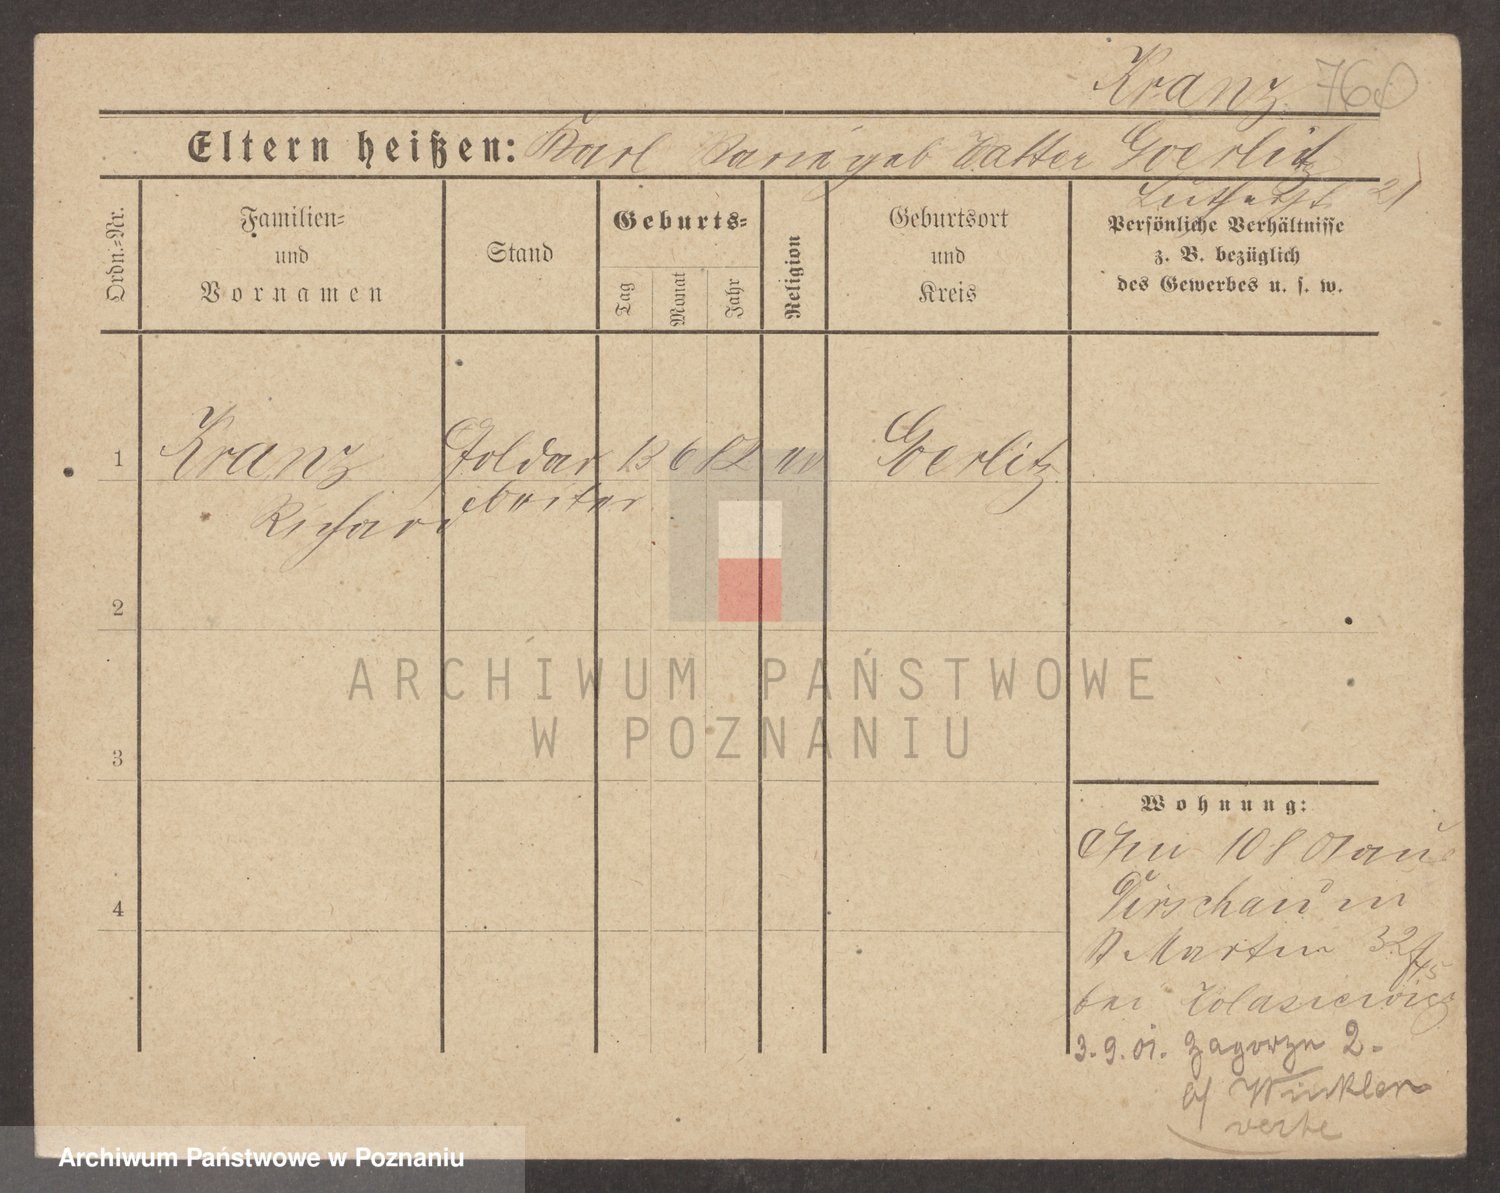 Kranz 760
Eltern heißen: Karl Maria geb Goerlitz
Lutherst 21
Ordn.-Nr.
Familien-
und
Vornamen
Stand
Geburts-
Tag
Monat
Jahr
Religion
Geburtsort
und
Kreis
Persönliche Verhältnisse
z. B. bezüglich
des Gewerbes u. s. w.
1 Kranz Goldar 13 6 82 ev Goerlitz
Richard beiter
2
3
4
ARCHIWUM PAŃSTWOWE
W POZNANIU
Wohnung:
Am 10 8 01 aus
Dirschau in
St Martin 32
bei
3.9.01. Zagorze 2.
b/ Winkler
verte
Archiwum Państwowe w Poznaniu